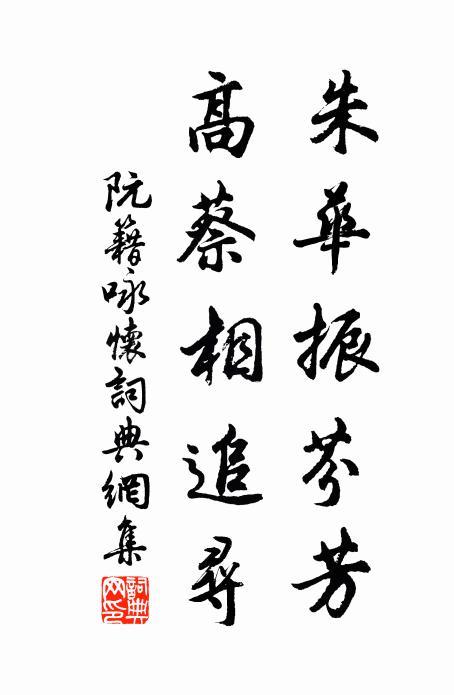 朱華振芬芳
高蔡相追尋
阮籍咏懷詞典網集
詞典網印